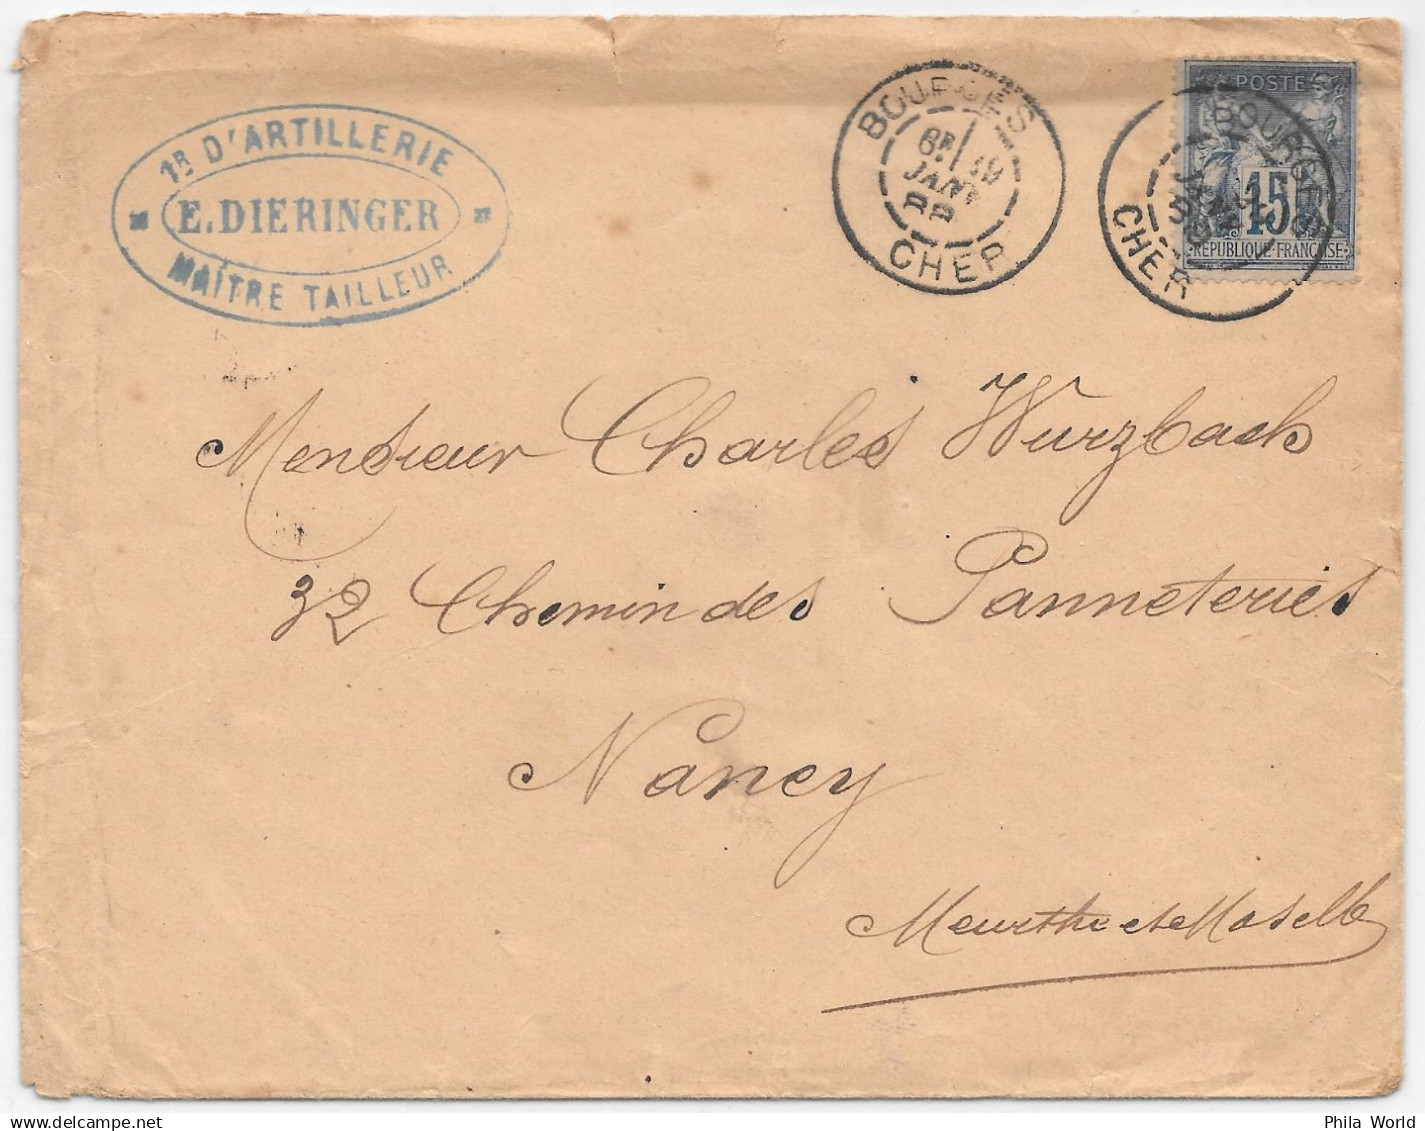 1R D'ARTILLERIE
E. DIERINGER
MAÎTRE TAILLEUR
BOURGES
6E 19
JANV
88
CHER
POSTE
15
REPUBLIQUE FRANÇAISE
BOURGES
JANV
CHER
Monsieur Charles Wurzbach
32 Chemin des Panneteries
Nancy
Meurthe et Moselle
Phila World